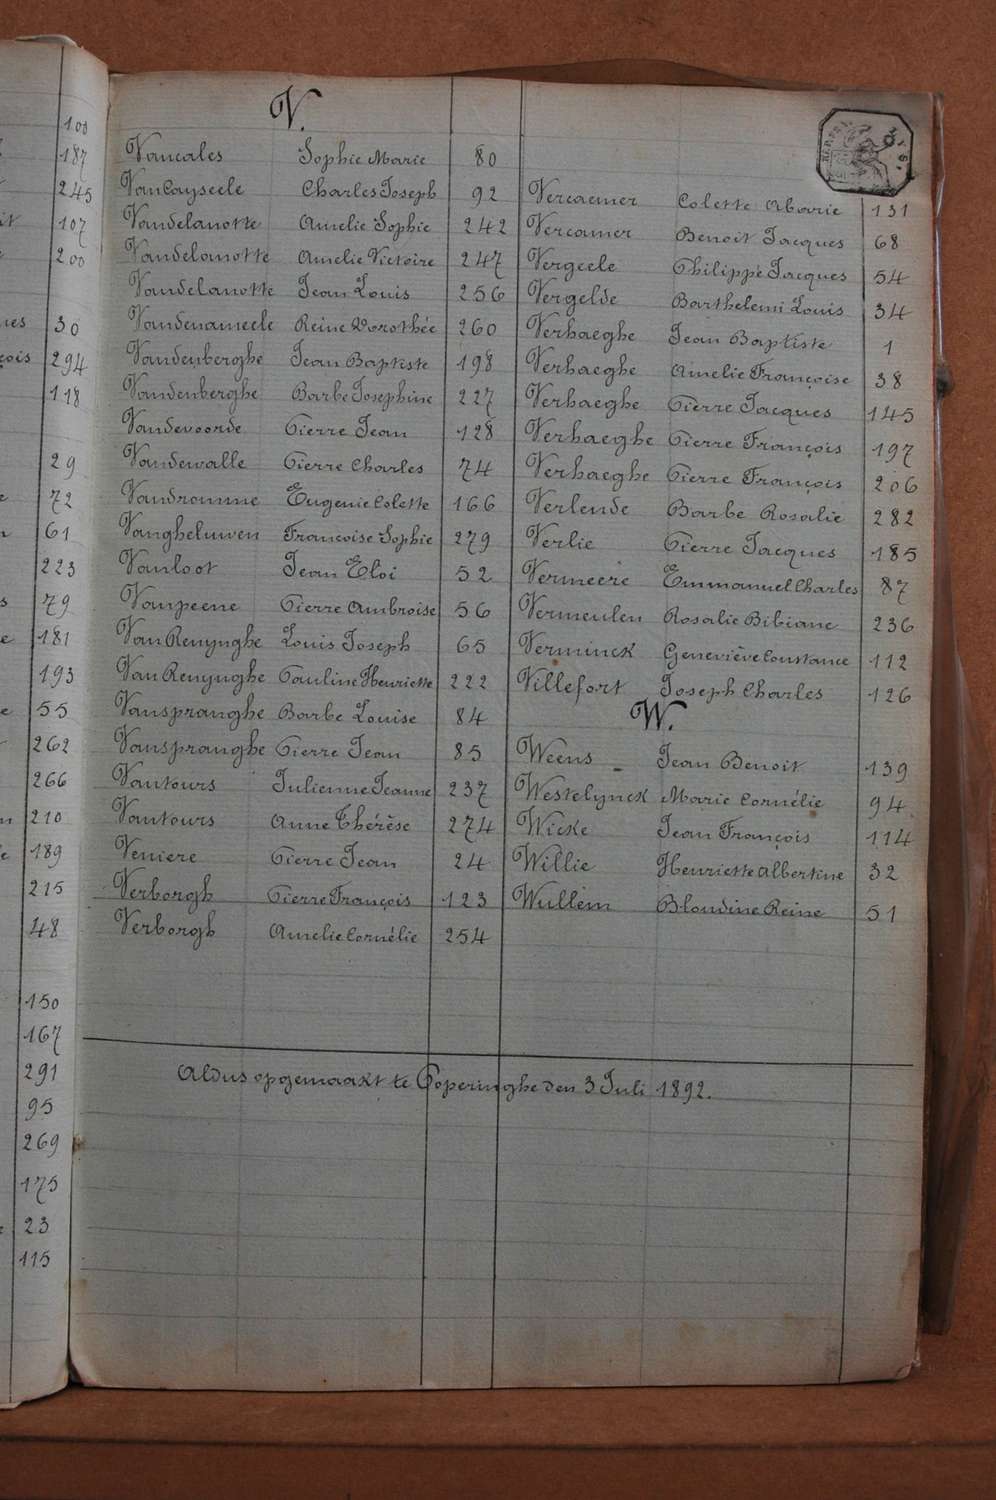 100
187
245
107
200
30
294
118
29
72
61
223
79
181
193
55
262
266
210
189
215
48
150
167
291
95
269
175
23
115
V.
Vancales Sophie Marie 80
VanCayseele Charles Joseph 92
Vandelanotte Amelie Sophie 242
Vandelanotte Amelie Victoire 247
Vandelanotte Jean Louis 256
Vandenameele Reine Dorothée 260
Vandenberghe Jean Baptiste 198
Vandenberghe Barbe Josephine 227
Vandevoorde Pierre Jean 128
Vandewalle Pierre Charles 74
Vandromme Eugenie Colette 166
Vangheluwen Francoise Sophie 279
Vanloot Jean Eloi 52
Vanpeene Pierre Ambroise 56
Van Renynghe Louis Joseph 65
Van Renynghe Pauline Henriette 222
Vanspranghe Barbe Louise 84
Vanspranghe Pierre Jean 85
Vantours Julienne Jeanne 237
Vantours Anne Thérèse 274
Veniere Pierre Jean 24
Verborgh Pierre François 123
Verborgh Amelie Cornélie 254
Vercaemer Colette Marie 131
Vercamer Benoit Jacques 68
Vergeele Philippe Jacques 54
Vergelde Barthelemi Louis 34
Verhaeghe Jean Baptiste 1
Verhaeghe Amelie Françoise 38
Verhaeghe Pierre Jacques 145
Verhaeghe Pierre François 197
Verhaeghe Pierre François 206
Verlende Barbe Rosalie 282
Verlie Pierre Jacques 185
Vermeere Emmanuel Charles 87
Vermeulen Rosalie Bibiane 236
Verminck Geneviève Constance 112
Villefort Joseph Charles 126
W.
Weens Jean Benoit 139
Westelynck Marie Cornélie 94
Wicke Jean François 114
Willie Henriette Albertine 32
Wullem Blondine Reine 51
Aldus opgemaakt te Poperinghe den 3 Juli 1892.